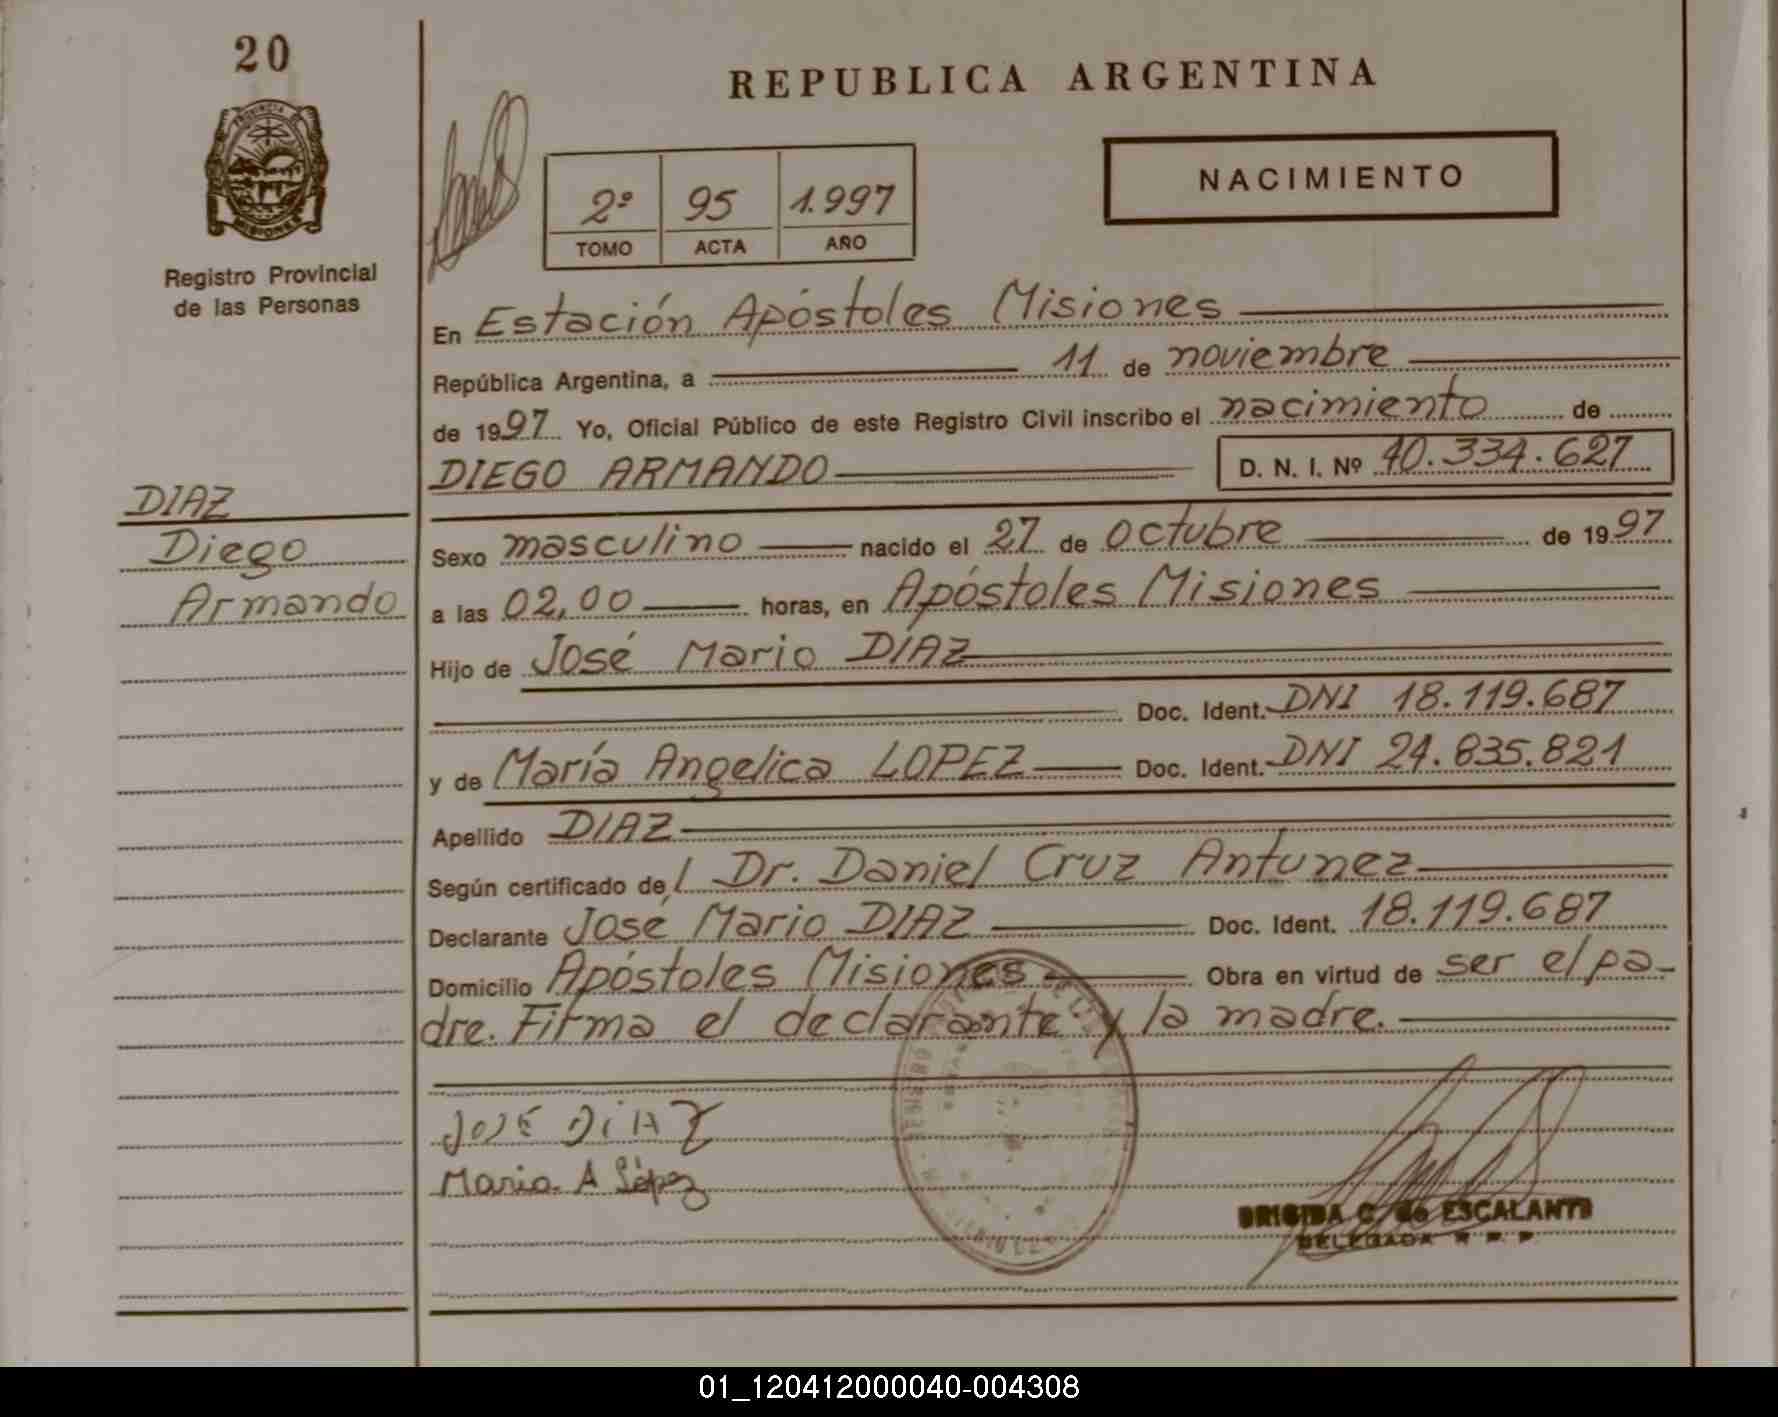 20
REPUBLICA ARGENTINA
PROVINCIA DE
MISIONES
Registro Provincial
de las Personas
2º 95 1.997
TOMO ACTA AÑO
NACIMIENTO
En Estación Apóstoles Misiones
República Argentina, a 11 de noviembre
de 1997 Yo, Oficial Público de este Registro Civil inscribo el nacimiento de
DIEGO ARMANDO D. N. I. Nº 40.334.627
DIAZ
Diego
Armando
Sexo masculino nacido el 27 de octubre de 1997
a las 02,00 horas, en Apóstoles Misiones
Hijo de José Mario DÍAZ
Doc. Ident. DNI 18.119.687
y de María Angelica LOPEZ Doc. Ident. DNI 24.835.821
Apellido DIAZ
Según certificado del Dr. Daniel Cruz Antunez
Declarante José Mario DIAZ Doc. Ident. 18.119.687
Domicilio Apóstoles Misiones Obra en virtud de ser el pa-
dre. Firma el declarante y la madre.
JOSE DiAZ
Maria A López
BRIGIDA C. de ESCALANTE
DELEGADA R P P
01_120412000040-004308